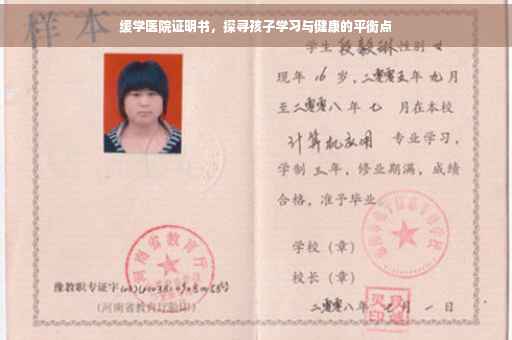 缓学医院证明书，探寻孩子学习与健康的平衡点
样本
学生 段毅琳 性别 女
现年 16 岁，二零零五年 九 月
至二零零八 年 七 月在本校
计算机应用 专业学习，
学制 三 年，修业期满，成绩
合格，准予毕业
学校（章）
校长（章）
二零零八年 七 月 一 日
河南省教育厅
豫教职专证字
(河南省教育厅验印)